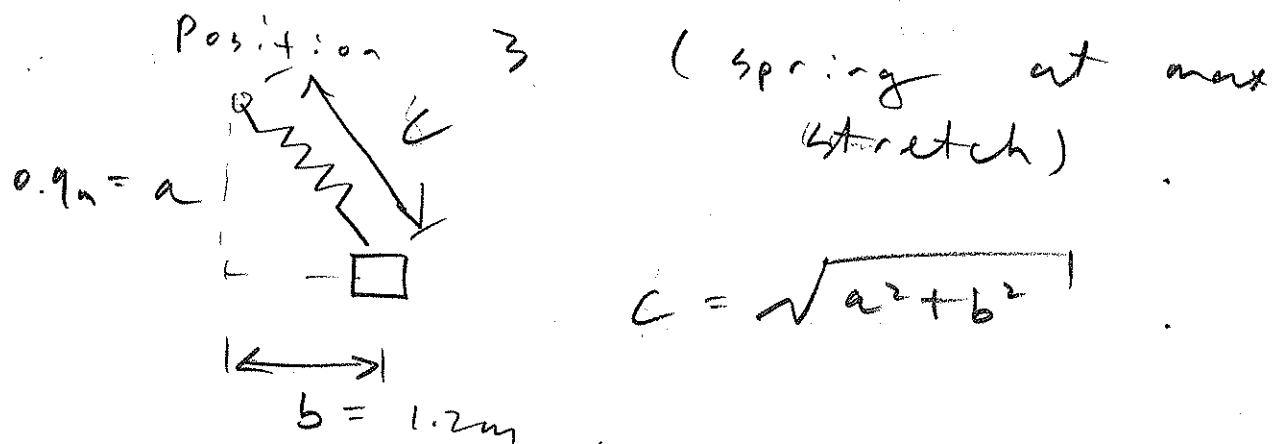 Position 3 (spring at max
stretch)
c
0.9m = a
c = √a² + b²
b = 1.2m